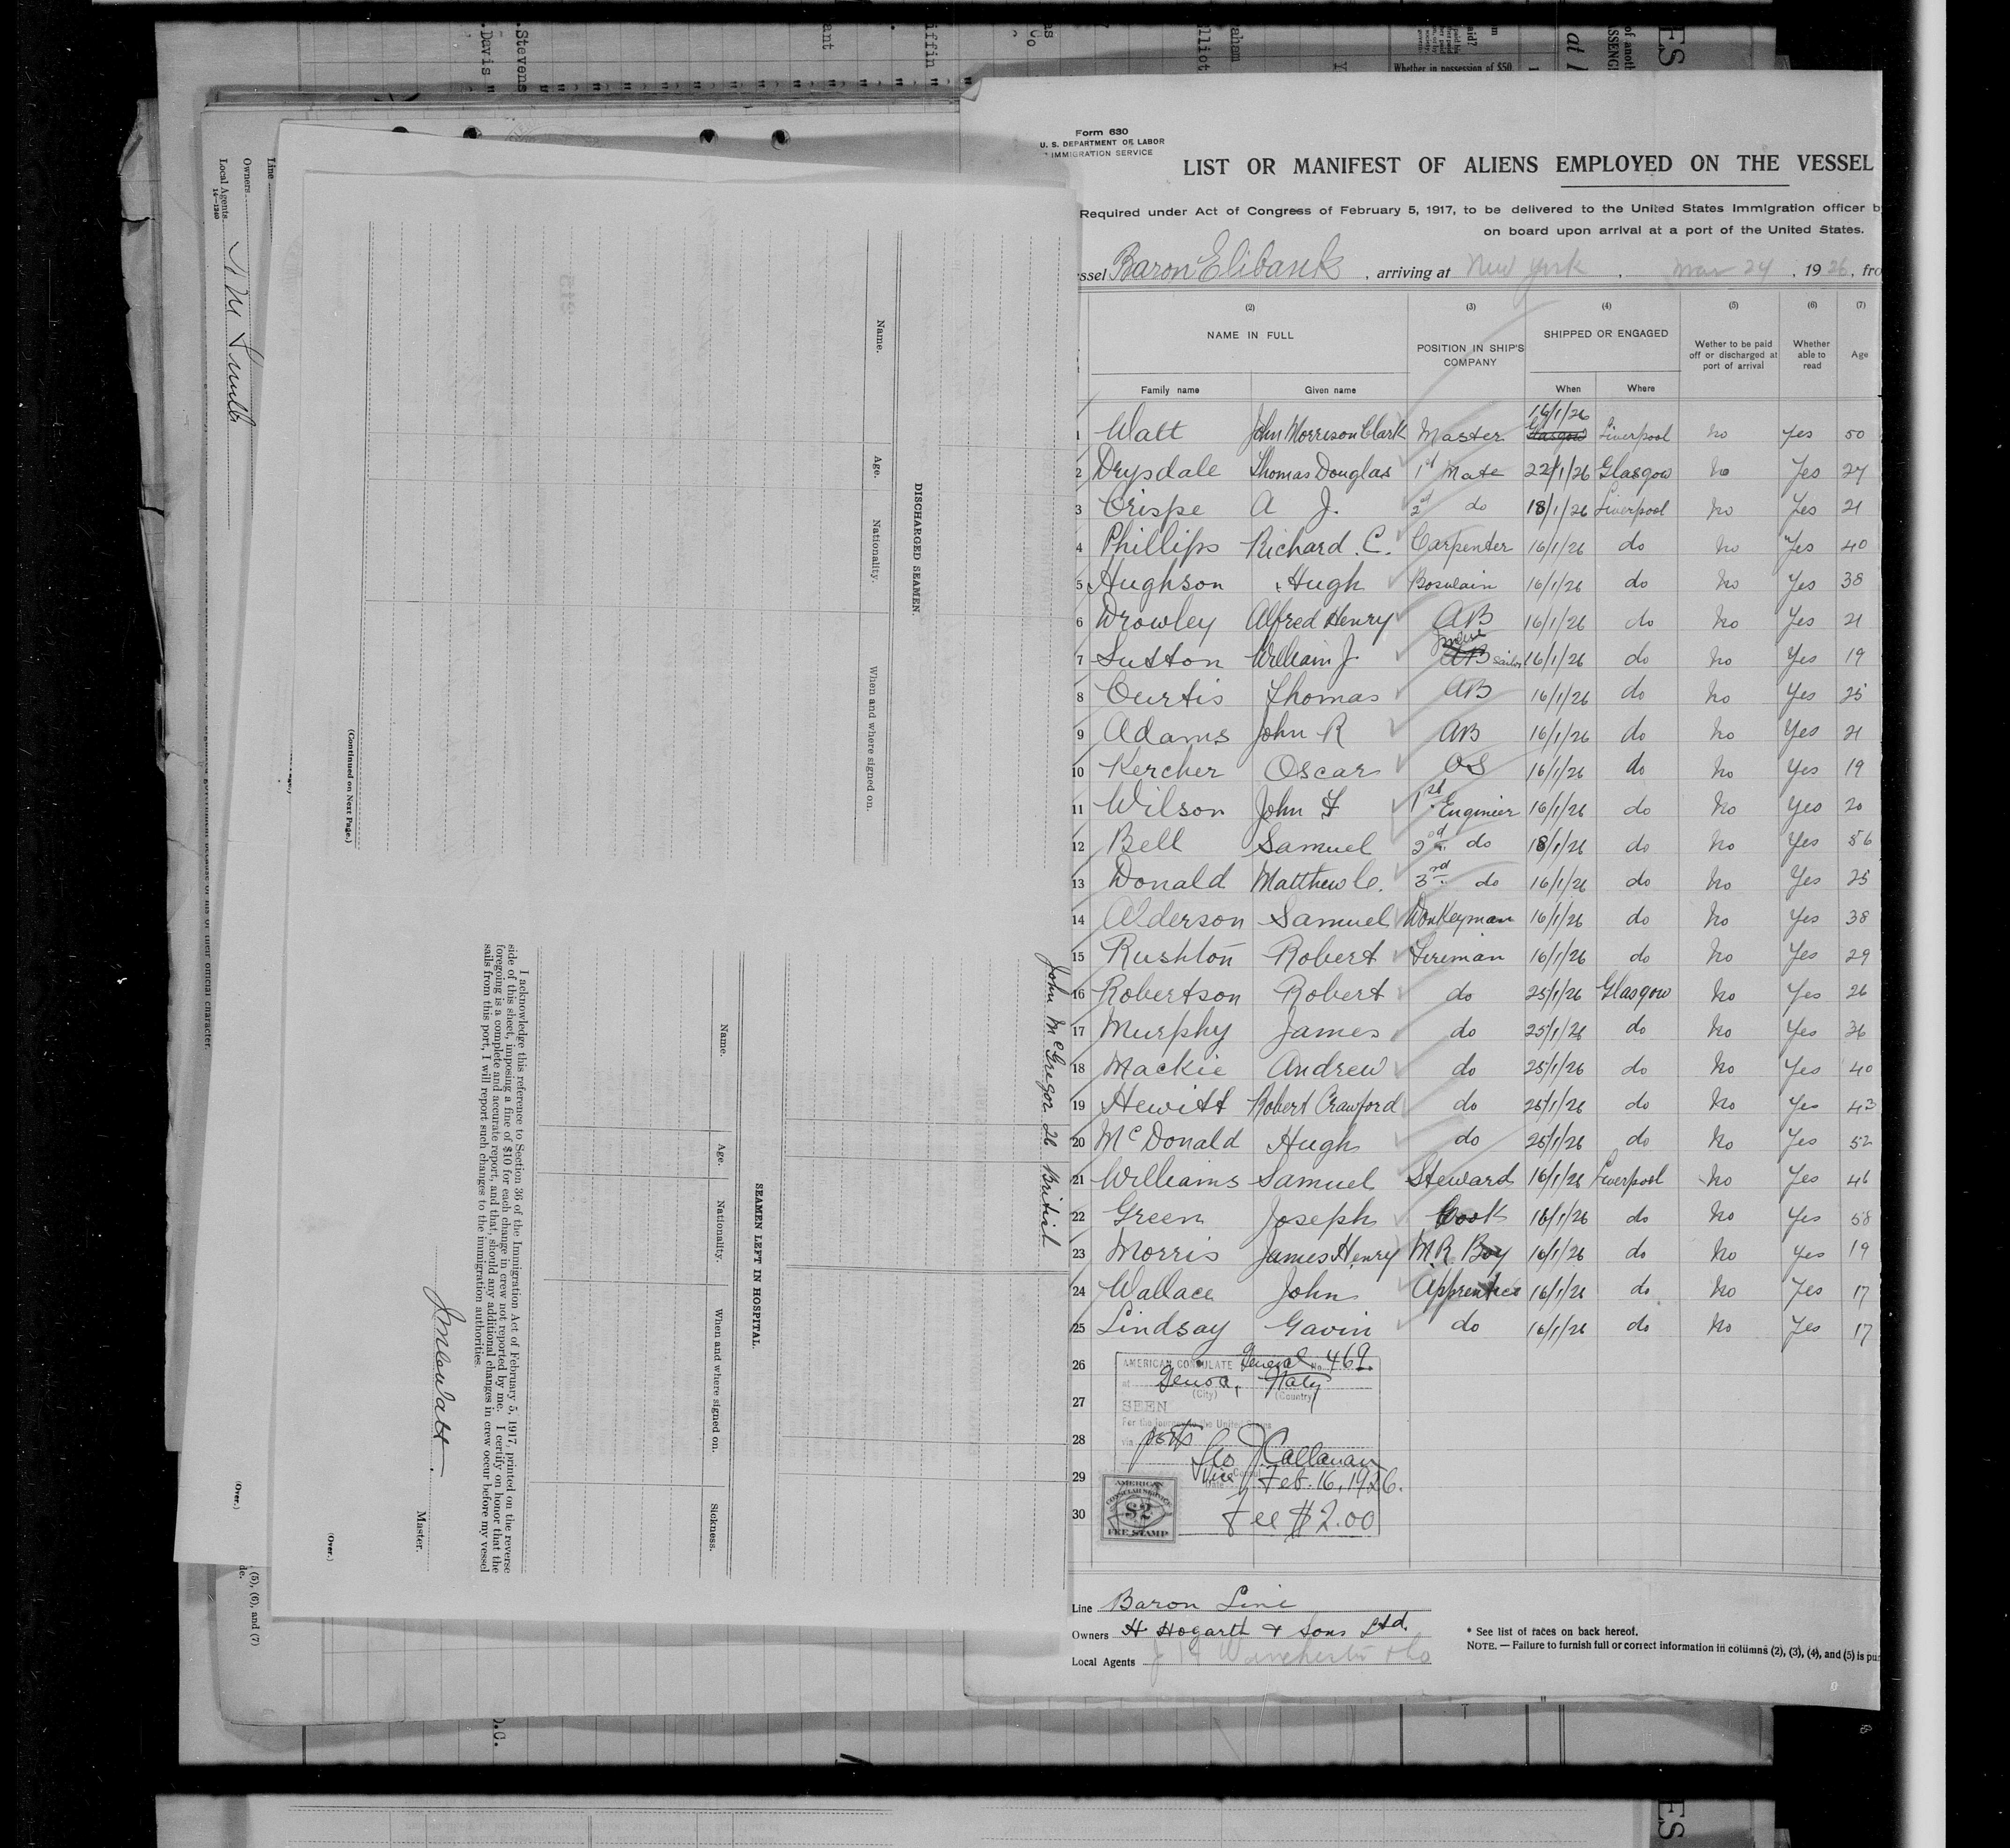 Form 630
U. S. DEPARTMENT OF LABOR
IMMIGRATION SERVICE
LIST OR MANIFEST OF ALIENS EMPLOYED ON THE VESSEL
Required under Act of Congress of February 5, 1917, to be delivered to the United States Immigration officer b
on board upon arrival at a port of the United States.
ssel Baron Elibank, arriving at New York, Mar 24, 1926, fro
(2) (3) (4) (5) (6) (7)
NAME IN FULL POSITION IN SHIP'S COMPANY SHIPPED OR ENGAGED Wether to be paid off or discharged at port of arrival Whether able to read Age
Family name Given name When Where
1 Watt John Morrison Clark Master 16/1/26 Glasgow Liverpool No Yes 50
2 Drysdale Thomas Douglas 1st Mate 22/1/26 Glasgow No Yes 27
3 Crispe A J. 2nd do 18/1/26 Liverpool No Yes 21
4 Phillips Richard. C. Carpenter 16/1/26 do No Yes 40
5 Hughson Hugh Boswain 16/1/26 do No Yes 38
6 Drowley Alfred Henry AB 16/1/26 do No Yes 21
7 Sutton William J. AB Sailor 16/1/26 do No Yes 19
8 Curtis Thomas AB 16/1/26 do No Yes 25
9 Adams John R AB 16/1/26 do No Yes 21
10 Kercher Oscar OS 16/1/26 do No Yes 19
11 Wilson John F 1st Enginier 16/1/26 do No Yes 20
12 Bell Samuel 2nd do 18/1/26 do No Yes 56
13 Donald Matthew C. 3rd do 16/1/26 do No Yes 25
14 Alderson Samuel Donkeyman 16/1/26 do No Yes 38
15 Rushton Robert Fireman 16/1/26 do No Yes 29
16 Robertson Robert do 25/1/26 Glasgow No Yes 26
17 Murphy James do 25/1/26 do No Yes 36
18 Mackie Andrew do 25/1/26 do No Yes 40
19 Hewitt Robert Crawford do 25/1/26 do No Yes 43
20 McDonald Hugh do 25/1/26 do No Yes 52
21 Williams Samuel Steward 16/1/26 Liverpool No Yes 46
22 Green Joseph Cook 16/1/26 do No Yes 58
23 Morris James Henry M.R. Boy 16/1/26 do No Yes 19
24 Wallace John Apprentice 16/1/26 do No Yes 17
25 Lindsay Gavin do 16/1/26 do No Yes 17
26
27
28
29
30
AMERICAN CONSULATE General No. 469.
at Genoa, Italy
(City) (Country)
SEEN
For the journey to the United States
via ports
Geo J. Callanan
Vice Consul
Date Feb. 16, 1926.
Fee $2.00
AMERICAN
CONSULAR SERVICE
$2
FEE STAMP
Line Baron Line
Owners H Hogarth & Sons Ltd.
Local Agents J H Winchester & Co
* See list of races on back hereof.
NOTE. — Failure to furnish full or correct information in columns (2), (3), (4), and (5) is pu
John McGregor 26 British
DISCHARGED SEAMEN.
Name. Age. Nationality. When and where signed on.
(Continued on Next Page.)
SEAMEN LEFT IN HOSPITAL.
Name. Age. Nationality. When and where signed on. Sickness.
I acknowledge this reference to Section 36 of the Immigration Act of February 5, 1917, printed on the reverse
side of this sheet, imposing a fine of $10 for each change in crew not reported by me. I certify on honor that the
foregoing is a complete and accurate report, and that, should any additional changes in crew occur before my vessel
sails from this port, I will report such changes to the immigration authorities.
Master.
(Over.)
Line
Owners
Local Agents
14—1240
(Over.)
(5), (6), and (7)
Stevens
Davis
Whether in possession of $50,